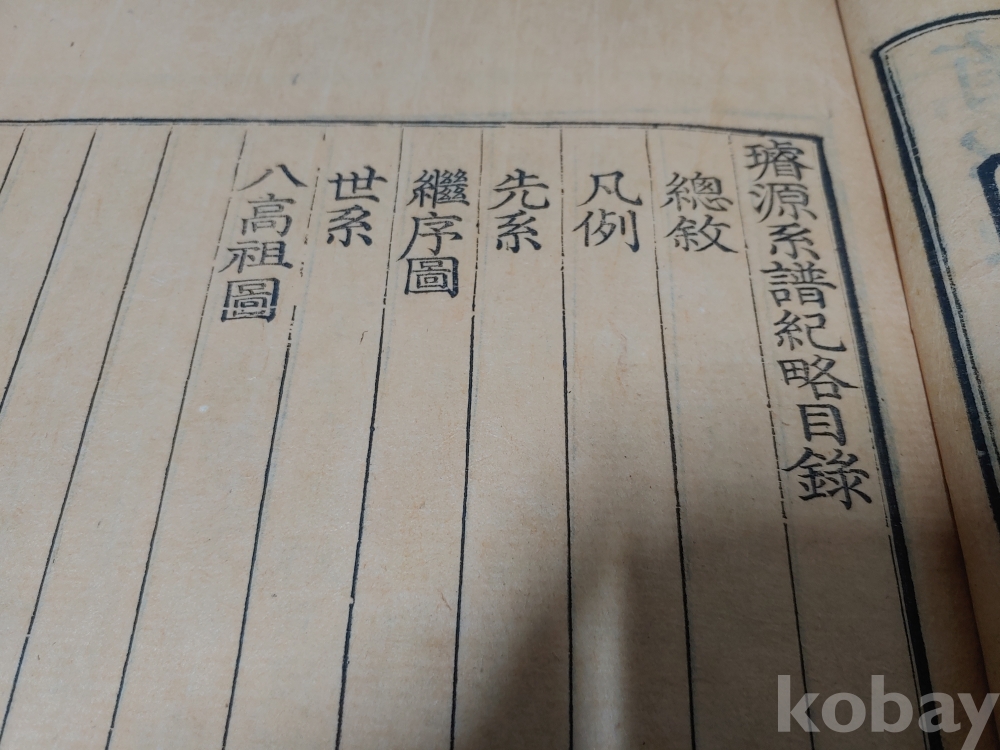 璿源系譜紀略目錄
總敘
凡例
先系
繼序圖
世系
八高祖圖
kobay